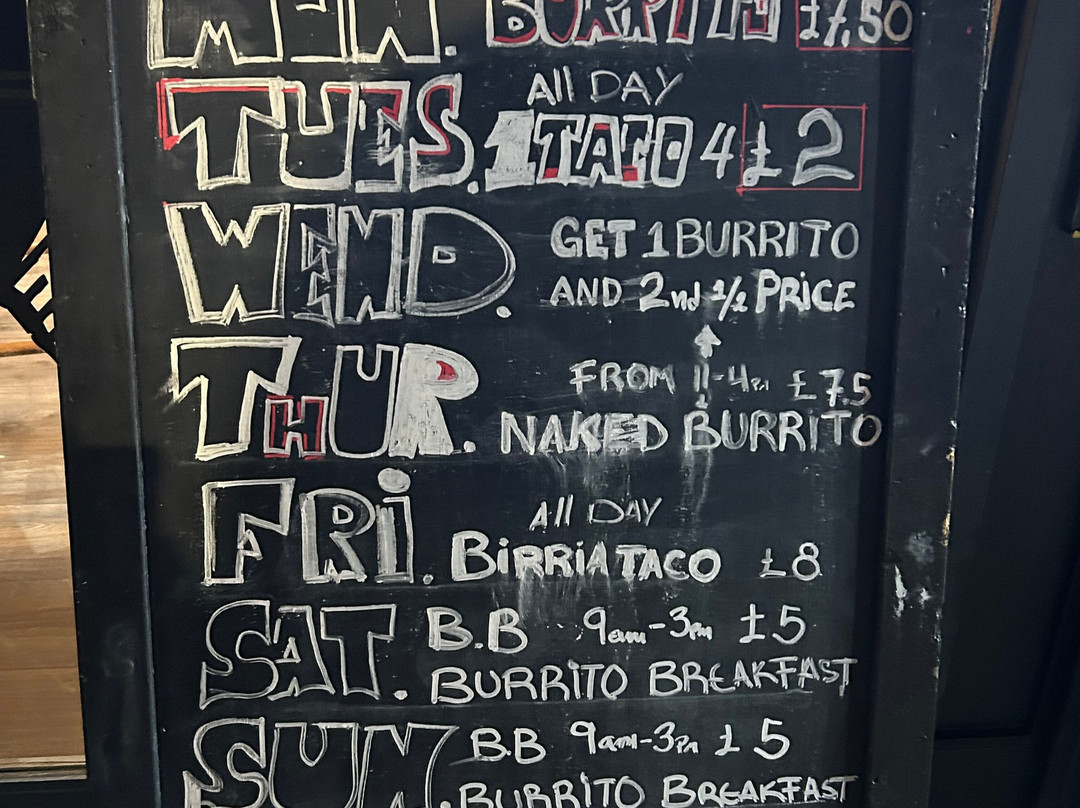 MEN. BURRITO £7.50
ALL DAY
TUES. 1 TACO 4 £2
WEND. GET 1 BURRITO
AND 2nd 1/2 PRiCE
FROM 11-4PM £7.5
THUR. NAKED BURRITO
All DAY
FRi. BiRRiA TACO £8
SAT. B.B 9am-3pm £5
BURRiTO BREAKFAST
SUN. B.B 9am-3pm £5
BURRiTO BREAKFAST